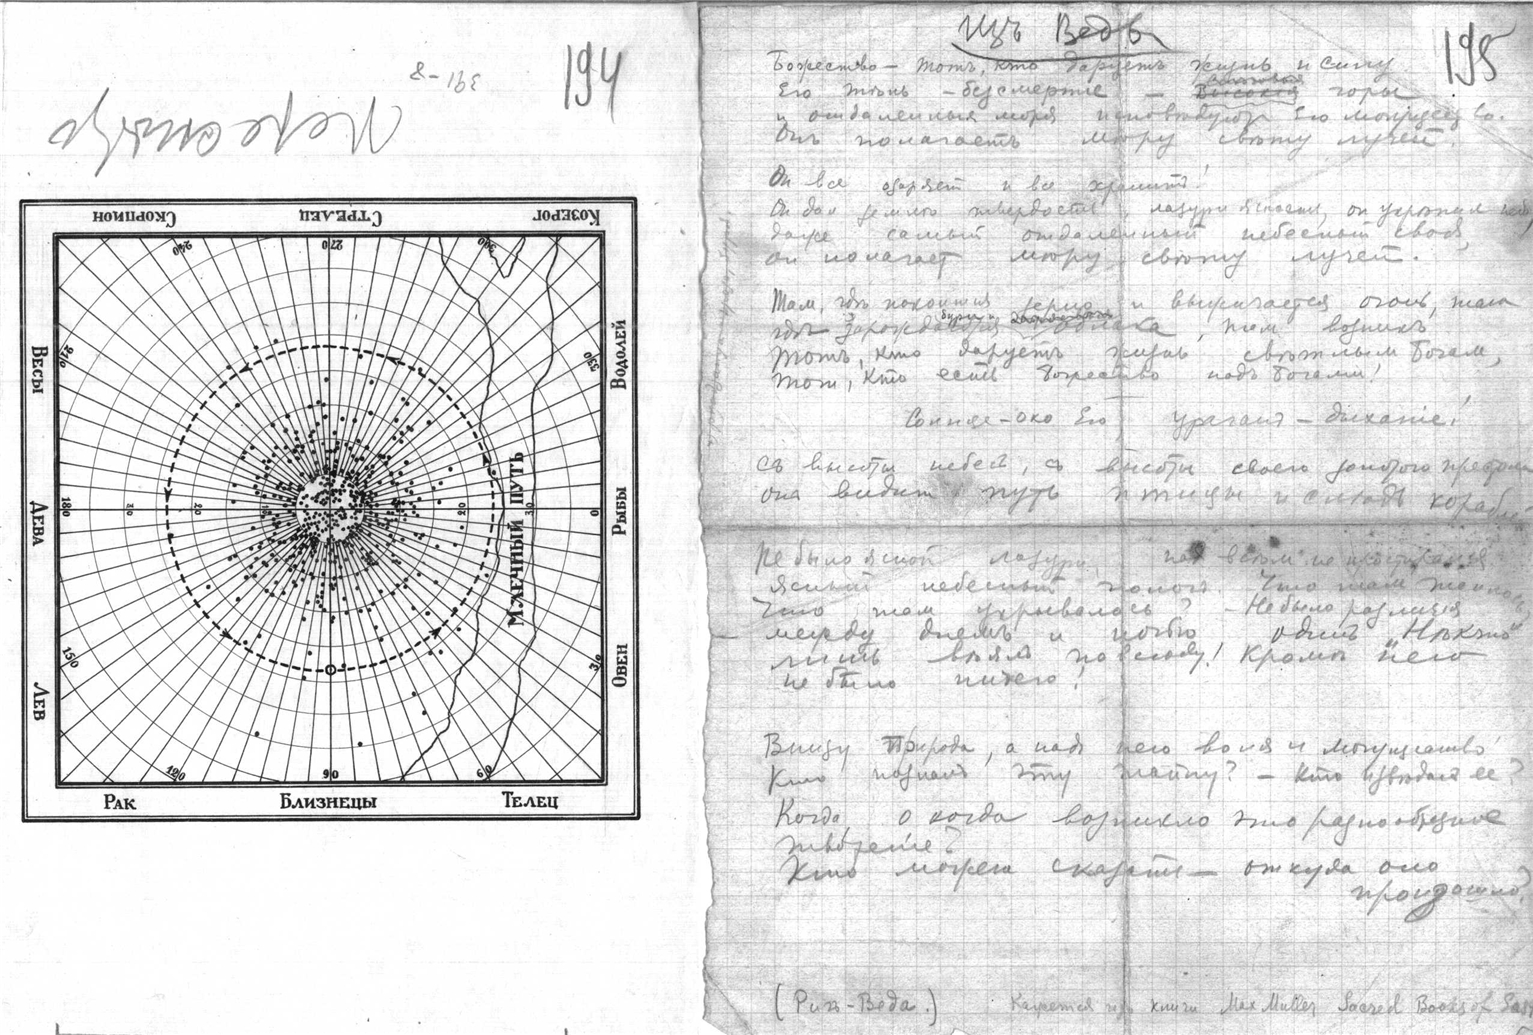 194
391-8
Козерог
Стрелец
Скорпион
300
270
240
Весы
210
Водолей
330
Дева
180
30
20
20
30
0
Рыбы
Млечный путь
Лев
150
Овен
30
120
90
60
Рак
Близнецы
Телец
195
Изъ Ведъ
Божество – тотъ, кто даруетъ жизнь и силу
Его тѣнь – безсмертие – горы
и отдаленныя моря исповѣдуютъ Его могущество.
Онъ полагаетъ мѣру свѣту лучей.
Он все озаряет и все хранитъ!
Он дал землѣ твердость, лазури ясность, он укрепил
даже самый отдаленный небесный свод,
он полагает мѣру свѣту лучей.
Там, гдѣ покоится зерно и выжигается огонь, там
гдѣ зарождаются облака, там возникъ
Тотъ, кто даруетъ жизнь свѣтлым богам,
тот, кто есть божество надъ богами!
Солнце – око Его, ураганъ – дыханіе!
Съ высоты небесъ, съ высоты своего золотого
она видит путь птицы и слѣдъ
Не было ясной лазури, над всѣм не простирался
ясный небесный пологъ. Что там
Что там укрывалось? – Не было различія
между днемъ и ночью, одинъ „Нѣкто“
лишь вѣял повсюду! Кромѣ него
не было ничего!
Внизу Природа, а надъ него воля и могущество
Кто позналъ эту тайну? – Кто извѣдает ее?
Когда о когда возникло это разнообразное
твореніе?
Кто может сказать – откуда оно
произошло?
(Риг-Веда.) Кажется изъ книги Max Muller Sacred Books of